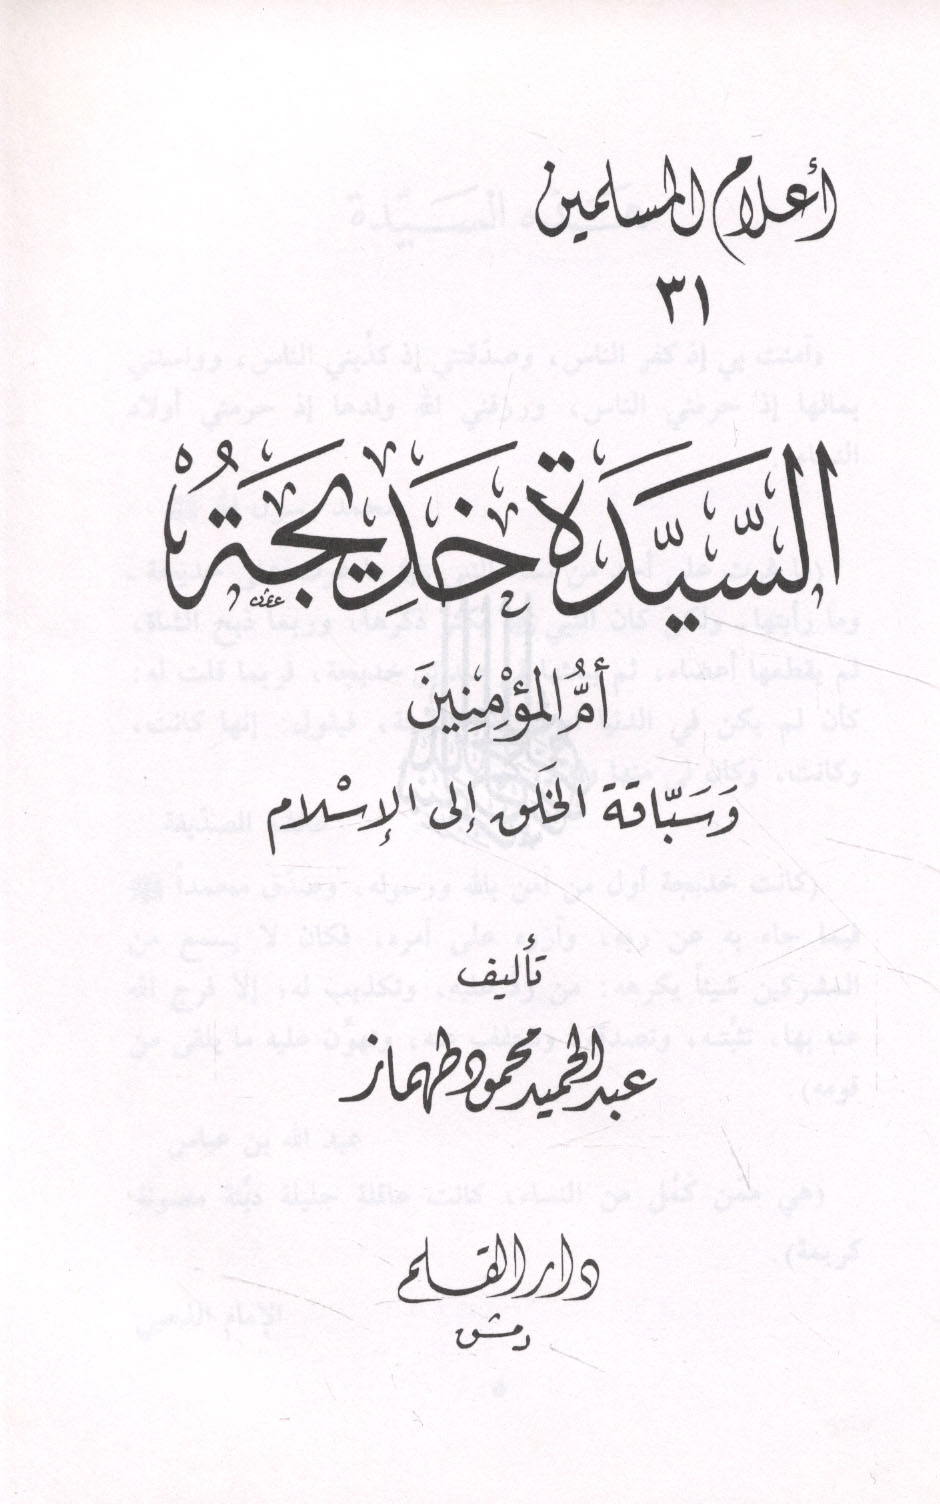 أعلام المسلمين
٣١
السَّيِّدَة خَدِيجَةُ
أمُّ المؤْمِنِينَ
وَسَبَّاقة الخَلق إلى الإسْلام
تأليف
عبد الحميد محمود طهماز
دار القلم
دمشق